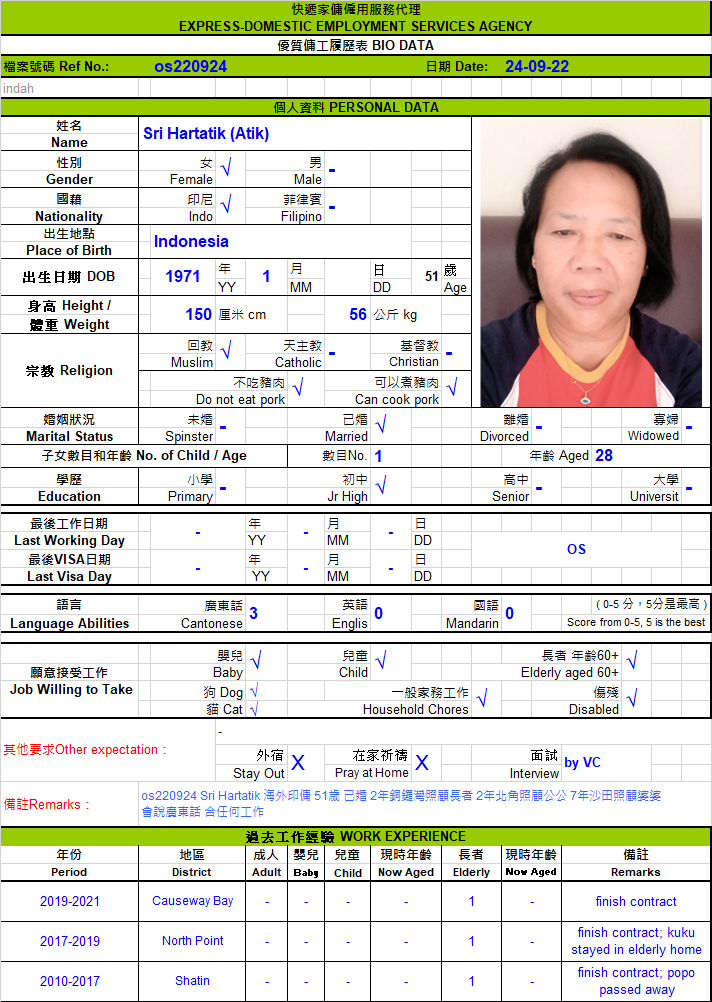 快遞家傭僱用服務代理
EXPRESS-DOMESTIC EMPLOYMENT SERVICES AGENCY
優質傭工履歷表 BIO DATA
檔案號碼 Ref No.: os220924 日期 Date: 24-09-22
indah
個人資料 PERSONAL DATA
姓名
Name Sri Hartatik (Atik)
性別 女 √ 男 -
Gender Female Male
國籍 印尼 √ 菲律賓 -
Nationality Indo Filipino
出生地點
Place of Birth Indonesia
出生日期 DOB 1971 年 1 月 日 51 歲
YY MM DD Age
身高 Height / 150 厘米 cm 56 公斤 kg
體重 Weight
宗教 Religion 回教 √ 天主教 - 基督教 -
Muslim Catholic Christian
不吃豬肉 √ 可以煮豬肉 √
Do not eat pork Can cook pork
婚姻狀況 未婚 - 已婚 √ 離婚 - 寡婦 -
Marital Status Spinster Married Divorced Widowed
子女數目和年齡 No. of Child / Age 數目No. 1 年齡 Aged 28
學歷 小學 - 初中 √ 高中 - 大學 -
Education Primary Jr High Senior Universit
最後工作日期 - 年 - 月 - 日
Last Working Day YY MM DD
OS
最後VISA日期 - 年 - 月 - 日
Last Visa Day YY MM DD
語言 廣東話 3 英語 0 國語 0 ( 0-5 分，5分是最高 )
Language Abilities Cantonese Englis Mandarin Score from 0-5, 5 is the best
願意接受工作 嬰兒 √ 兒童 √ 長者 年齡60+ √
Job Willing to Take Baby Child Elderly aged 60+
狗 Dog √ 一般家務工作 √ 傷殘 √
貓 Cat √ Household Chores Disabled
-
其他要求Other expectation： 外宿 X 在家祈禱 X 面試 by VC
Stay Out Pray at Home Interview
備註Remarks： os220924 Sri Hartatik 海外印傭 51歲 已婚 2年銅鑼灣照顧長者 2年北角照顧公公 7年沙田照顧婆婆
會說廣東話 合任何工作
過去工作經驗 WORK EXPERIENCE
年份 地區 成人 嬰兒 兒童 現時年齡 長者 現時年齡 備註
Period District Adult Baby Child Now Aged Elderly Now Aged Remarks
2019-2021 Causeway Bay - - - - 1 - finish contract
2017-2019 North Point - - - - 1 - finish contract; kuku
stayed in elderly home
2010-2017 Shatin - - - - 1 - finish contract; popo
passed away